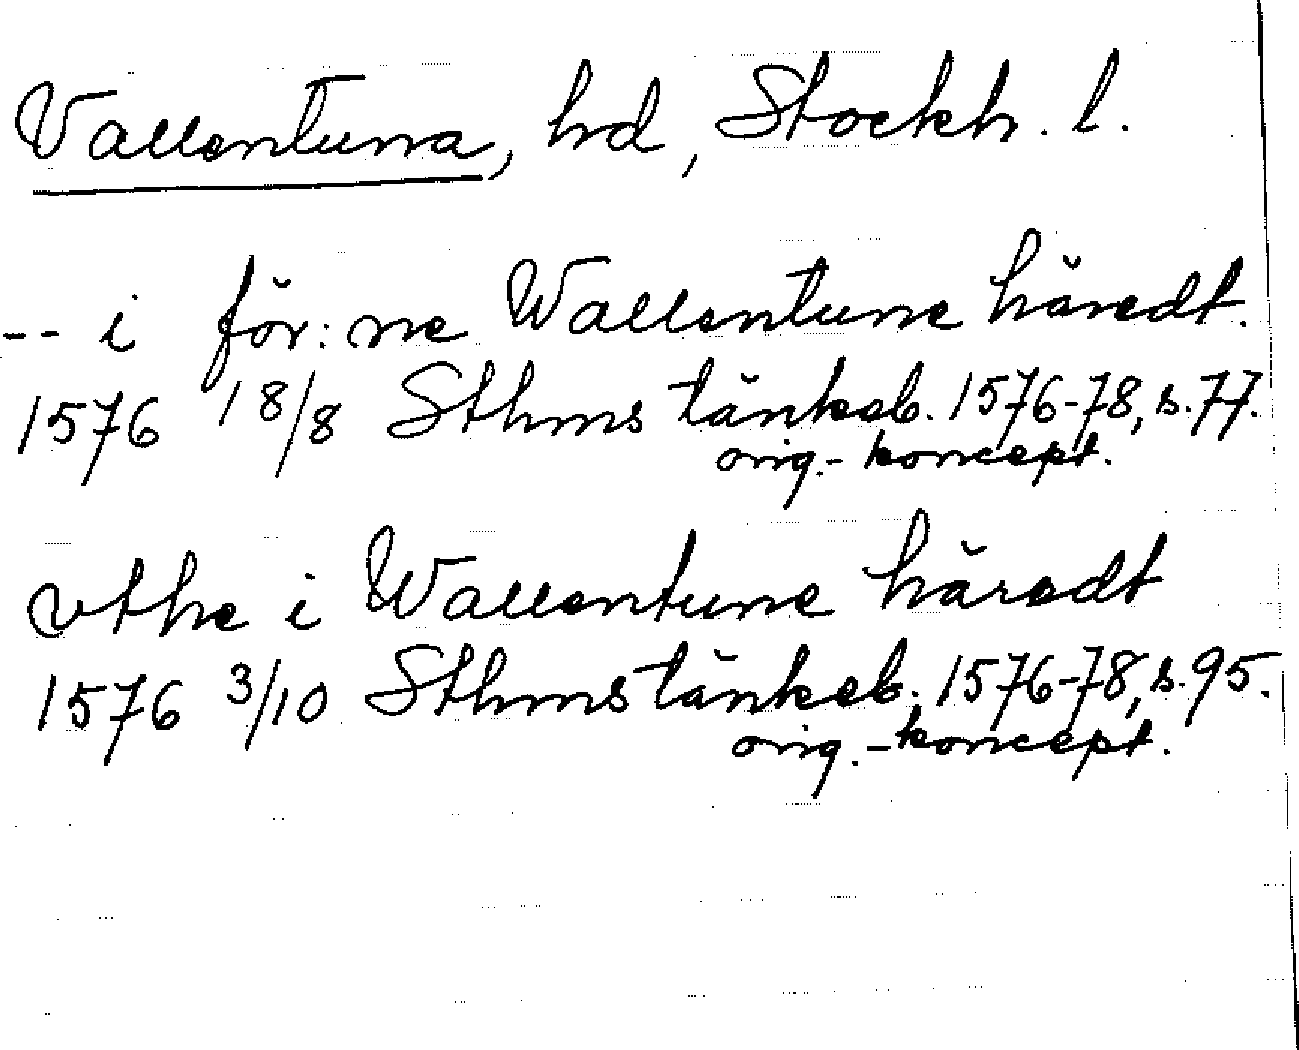 Vallentuna, hd, Stockh. l.
-- i för: ne Wallentune häredt.
1576 18/8 Sthms tänkeb. 1576-78, s. 77.
orig.- koncept.
vthe i Wallentune häredt
1576 3/10 Sthms tänkeb. 1576-78, s. 95.
orig.-koncept.